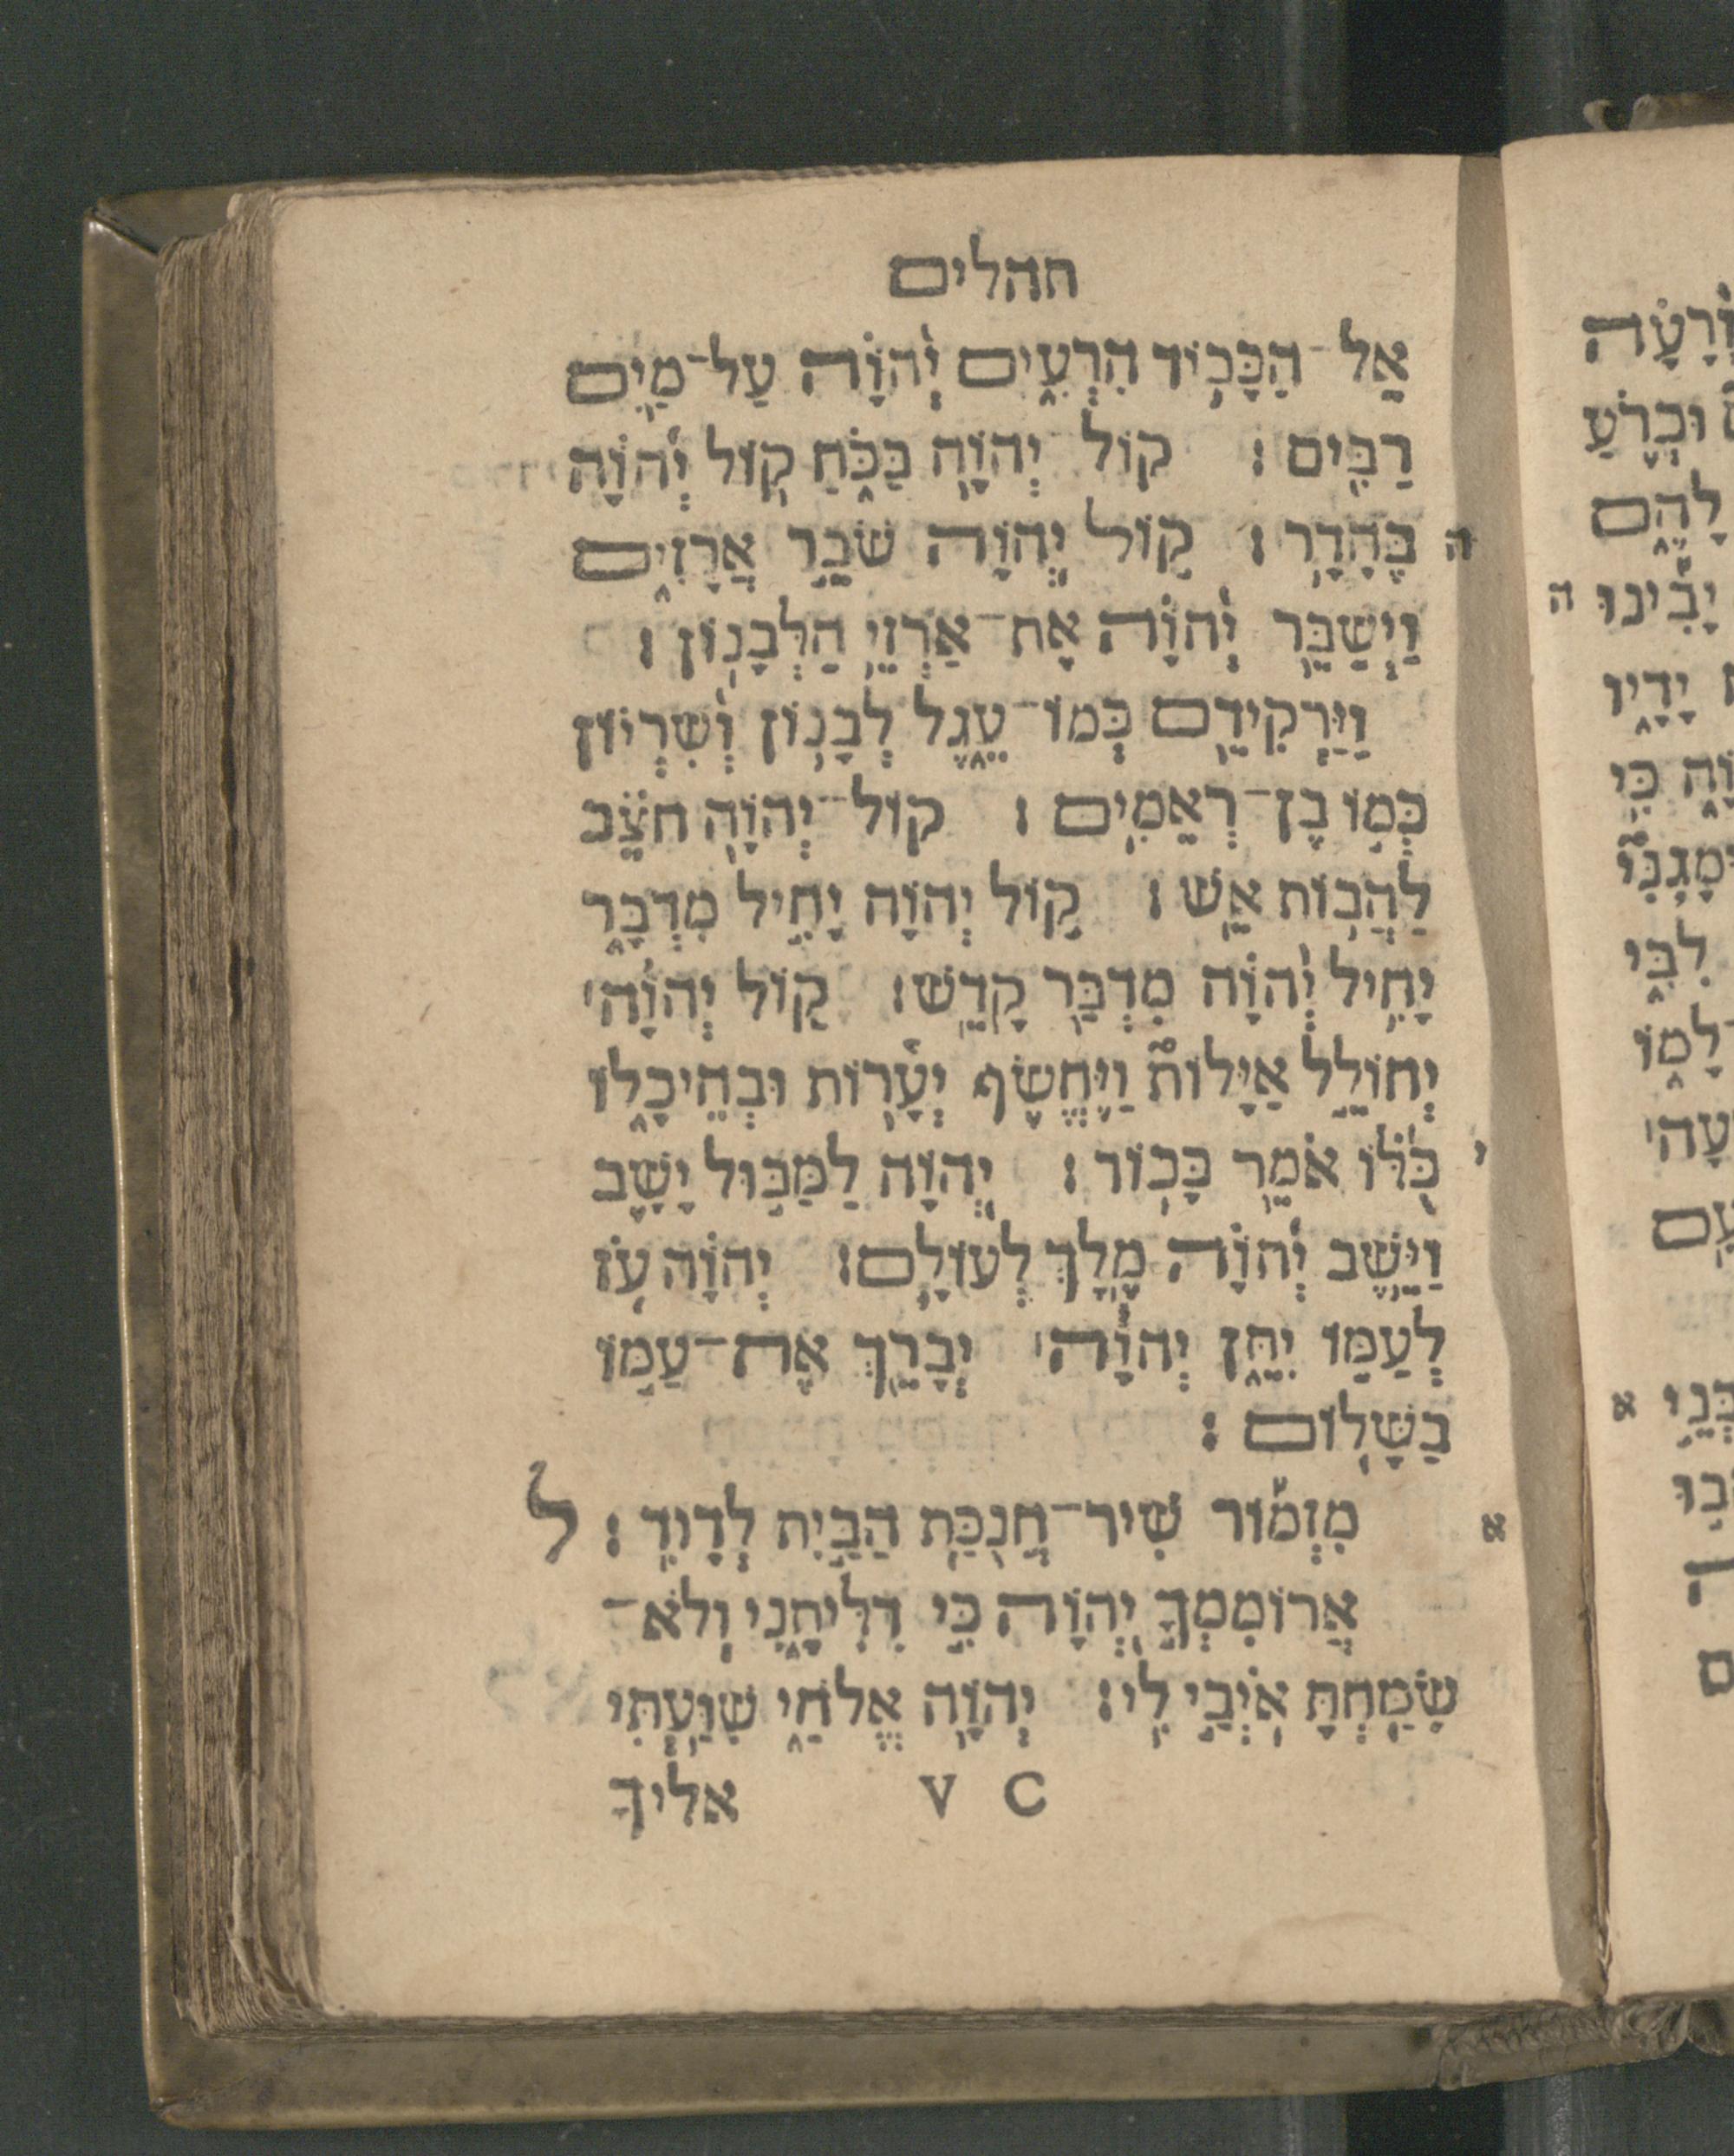 תהלים
אֵֽל־הַכָּב֥וֹד הִרְעִ֑ים יְ֝הוָ֗ה עַל־מַ֥יִם
רַבִּֽים׃ קוֹל־יְהוָ֥ה בַּכֹּ֑חַ ק֥וֹל יְ֝הוָ֗ה
ה בֶּהָדָֽר׃ ק֣וֹל יְ֭הוָה שֹׁבֵ֣ר אֲרָזִ֑ים
וַיְשַׁבֵּ֥ר יְ֝הוָ֗ה אֶת־אַרְזֵ֥י הַלְּבָנֽוֹן׃
וַיַּרְקִידֵ֥ם כְּמוֹ־עֵ֑גֶל לְבָנ֥וֹן וְ֝שִׂרְיֹ֗ון
כְּמ֣וֹ בֶן־רְאֵמִֽים׃ קוֹל־יְהוָ֥ה חֹצֵ֗ב
לַהֲב֥וֹת אֵֽשׁ׃ ק֣וֹל יְ֭הוָה יָחִ֣יל מִדְבָּ֑ר
יָחִ֥יל יְ֝הוָ֗ה מִדְבַּ֥ר קָדֵֽשׁ׃ ק֤וֹל יְהוָ֨ה׀
יְחוֹלֵ֣ל אַיָּלוֹת֮ וַֽיֶּחֱשֹׂ֪ף יְעָ֫ר֥וֹת וּבְהֵיכָל֑וֹ
י כֻּ֝לּ֗וֹ אֹמֵ֥ר כָּבֽוֹד׃ יְ֭הוָה לַמַּבּ֣וּל יָשָׁ֑ב
וַיֵּ֥שֶׁב יְ֝הוָ֗ה מֶ֣לֶךְ לְעוֹלָֽם׃ יְֽהוָ֗ה עֹ֭ז
לְעַמּ֣וֹ יִתֵּ֑ן יְהוָ֓ה׀ יְבָרֵ֖ךְ אֶת־עַמּ֣וֹ
בַשָּׁלֽוֹם׃
א מִזְמ֡וֹר שִׁיר־חֲנֻכַּ֖ת הַבַּ֣יִת לְדָוִֽד׃ ל
אֲרוֹמִמְךָ֣ יְ֭הוָה כִּ֣י דִלִּיתָ֑נִי וְלֹא־
שִׂמַּ֖חְתָּ אֹֽיְבַ֣י לִֽי׃ יְהוָ֥ה אֱלֹהָ֑י שִׁוַּ֥עְתִּי
C V אליך